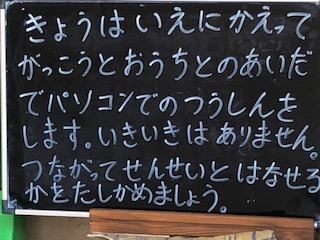 きょうは いえに かえって
がっこうと おうちとの あいだ
で パソコンでの つうしんを
します。いきいきは ありません。
つながって せんせいと はなせる
かをたしかめましょう。